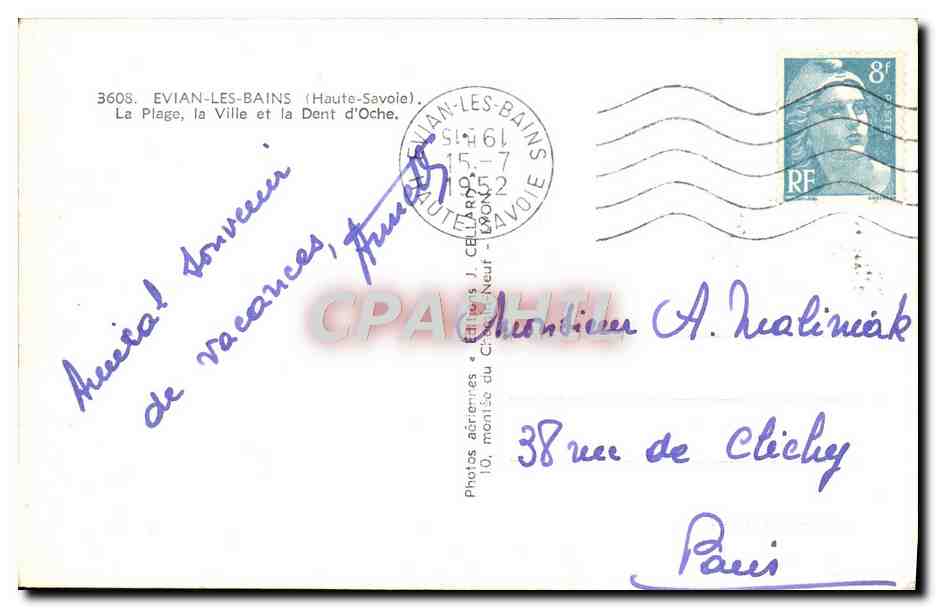 3608. EVIAN-LES-BAINS (Haute-Savoie).
La Plage, la Ville et la Dent d'Oche.
EVIAN-LES-BAINS
19H15
15-7
1952
HAUTE-SAVOIE
8f
POSTES
RF
Amical souvenir
de vacances,
Photos aériennes « Editions J. CELLARD »
10, montée du Chemin-Neuf - LYON
CPAPHIL
Monsieur A. Malimiak
38 rue de Clichy
Paris